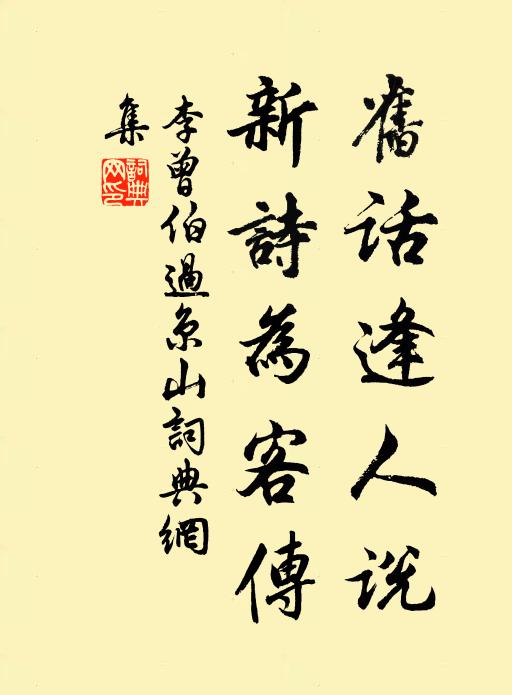 舊話逢人説
新詩為客傳
李曾伯過京山詞典網
集
詞典網印